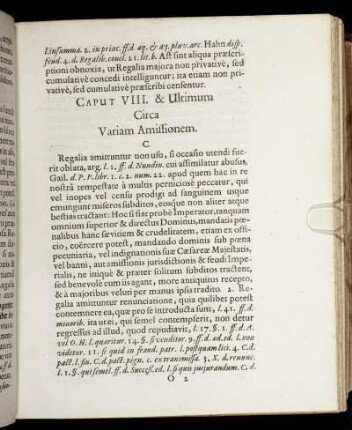 L in summa. 2. in princ. ff. d. aq. & aq. pluv. arc. Hahn disp.
feud. 4. d. Regalib. concl. 21. lit. b. Ast sint aliqua præscri-
ptioni obnoxia, ut Regalia majora non privativè, sed
cumulativè concedi intelliguntur; ita etiam non pri-
vativè, sed cumulativè præscribi censentur.
CAPUT VIII. & Ultimum
Circa
Variam Amissionem.
C
Regalia amittuntur non usu, si occasio utendi fue-
rit oblata, arg. l. 1. ff. d. Nundin. cui assimilatur abusus,
Gail. d. P. P. libr. 1. c. 2. num. 22. apud quem hac in re
nostrâ tempestate à multis perniciosè peccatur, qui
vel inopes vel censu prodigi ad sanguinem usque
emungunt miseros subditos, eosque non aliter atque
bestias tractant: Hoc si fiat probè Imperator, tanquam
omnium superior & directus Dominus, mandatis poe-
nalibus hanc sævitiem & crudelitatem, etiam ex offi-
cio, coërcere potest, mandando dominis sub pœna
pecuniaria, vel indignationis suæ Cæsareæ Majestatis,
vel banni, aut amissionis jurisdictionis & feudi Impe-
rialis, ne iniquè & præter solitum subditos tractent,
sed benevole cum iis agant, more antiquitus recepto,
& à majoribus veluti per manus ipsis tradito. 2. Re-
galia amittuntur renunciatione, quia quilibet potest
contemnere ea, quæ pro se introducta sunt, l. 41. ff. d.
minorib. ita ut ei, qui semel contempserit, non detur
regressus ad illud, quod repudiavit, l. 17. §. 1. ff. d. A.
vel O. H. l. quæritur. 14. §. si venditor. 9. ff. d. æd. ed. l. non
videtur. 11. si quid in fraud. patr. l. postquam liti. 4. C. d.
pact. l. fin. C. d. pact. pign. c. ex transmissa. 3. X. d. renunc.
l. 1. §. qui semel. ff. d. Succes. ed. l. si quis jusjurandum. C. d.
O 2